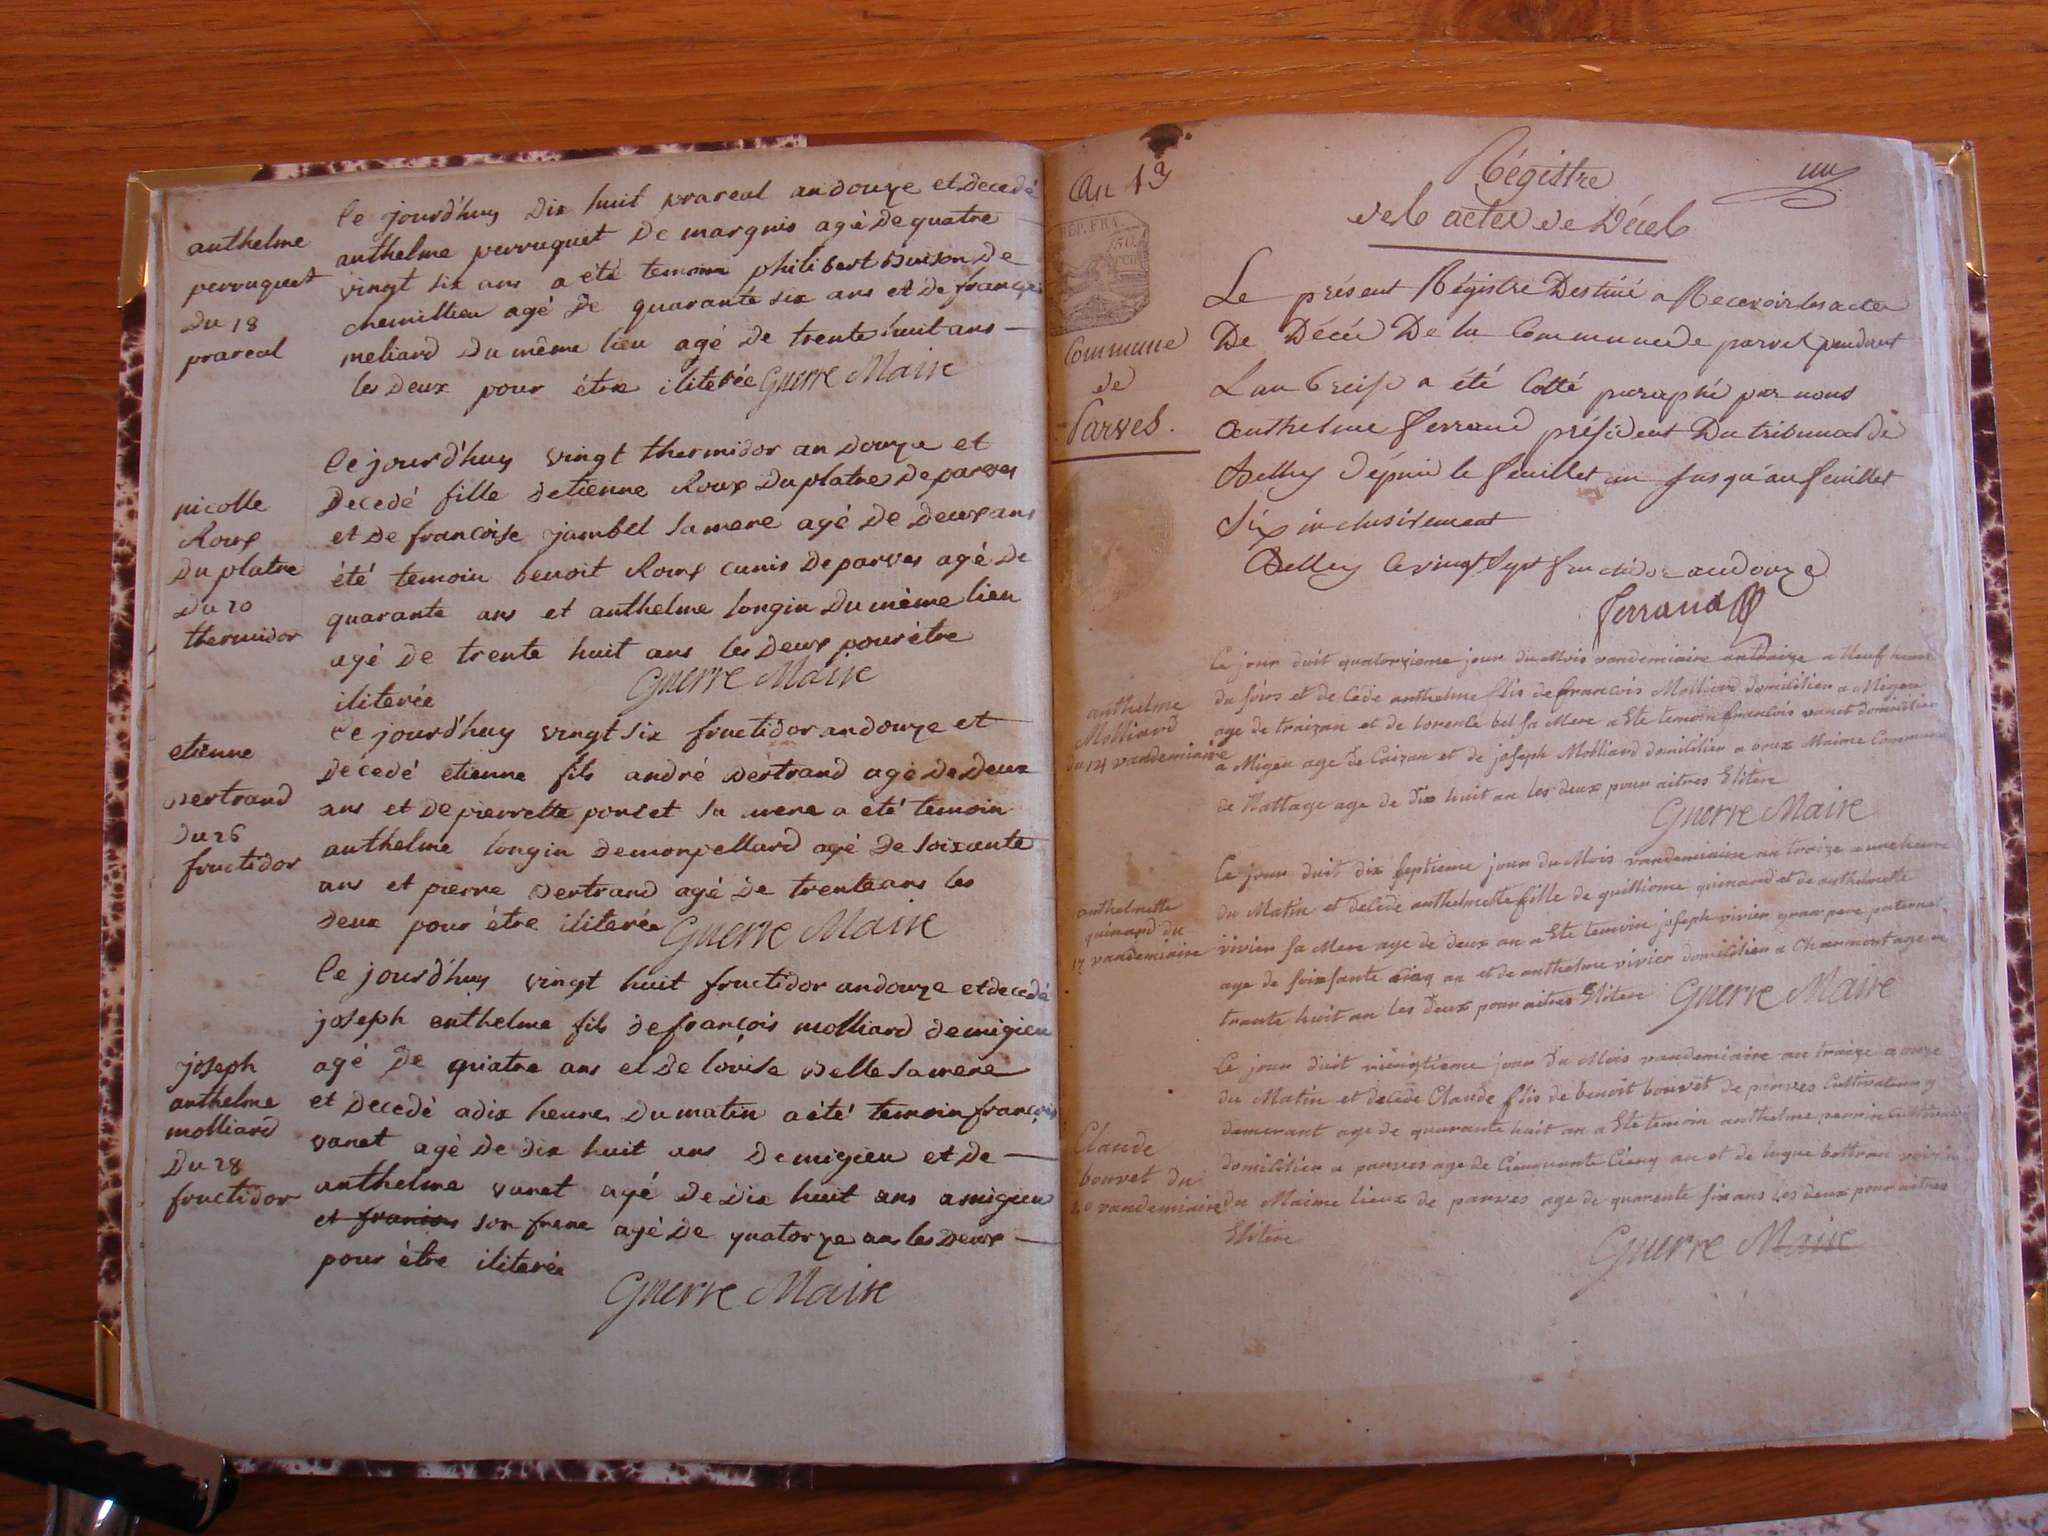 anthelme
perruquet
Du 18
prareal
Ce jourd'huy Dix huit prareal an douze et decedé
anthelme perruquet De margnis agé De quatre
vingt six ans a été temoin philibert buison De
chemillieu agé De quarante six ans et de françois
meliard Du même lieu agé de trente huit ans
les Deux pour être iliterée Guerre Maire
nicolle
Roux
Du platre
Du 20
thermidor
Ce jourd'huy vingt thermidor an Douze et
Decedé fille detienne Roux Du platre De parves
et De francoise jambet sa mere agé De Deux ans
été temoin benoit Roux cunis De parves agé De
quarante ans et anthelme longin Du même lieu
agé De trente huit ans les Deux pour être
iliterée
Guerre Maire
etienne
bertrand
Du 26
fructidor
Ce jourd'huy vingt six fructidor an douze et
Decedé etienne fils andré bertrand agé De Deux
ans et De pierrette ponset sa mere a été temoin
anthelme longin De montpellard agé De soixante
ans et pierre bertrand agé De trente ans les
Deux pour être iliterée Guerre Maire
joseph
anthelme
molliard
Du 28
fructidor
Ce jourd'huy vingt huit fructidor an douze et decedé
joseph enthelme fils De françois molliard De migieu
agé De quatre ans et De louise belle sa mere
et Decedé a dix heure Du matin a été temoin françois
vanet agé De dix huit ans De migieu et De
anthelme vanet agé De Dix huit ans a migieu
et francois son frere agé De quatorze ans les Deux
pour être iliterée
Guerre Maire
An 13
REP. FRA.
50
Commune
de
Parves.
Régistre
des actes de Décés
Le présent Régistre Destiné a Recevoir les actes
De Décés De la Commune de parves pendant
L'an treise a été Cotté paraphé par nous
Anthelme ferrand président Du tribunal de
Belley Dépuis le feuillet un jusqu'au feuillet
Six inclusivement
Belley le vingt Sept fructidor an douze
ferrand
anthelme
Molliard
du 14 vandemiaire
Ce jour duit quatorzieme jour du Mois vandemiaire an traize a Neuf heure
du soirs et de Cede anthelme flis de francois Molliard domicilier a Migeu
age de traizan et de lorenle bel sa Mere a Ete temoin francois vanet domicilier
a Migeu age de Caizan et de joseph Molliard domicilier a Maime Commune
de Nattage age de Dix huit an les deux pour aitres Elitere
Guerre Maire
anthelmette
guinard du
17 vandemiaire
Ce jour duit dix septieme jour du Mois vandemiaire an traize a une heure
du Matin et decede anthelmette fille de guilliome guinard et de anthelmette
vivier sa Mere age de deux an a Ete temoin joseph vivier gran pere paternel
age de soixsante cinq an et de anthelme vivier domicilier a Charmont age
trante huit an les Deux pour aitres Elitere Guerre Maire
Claude
bouvet du
20 vandemiaire
Ce jour duit vieingtieme jour du Mois vandemiaire an traize a onze
du Matin et decede Claude flis de benoit bouvet de parves Cultivateur y
demerant age de quarante huit an a Ete temoin anthelme perrin Cultivateur
domicilier a parves age de Cienquante Cienq an et de hugue bottran
du Maime lieux de parves age de quarente six ans les deux pour aitres
Elitere
Guerre Maire